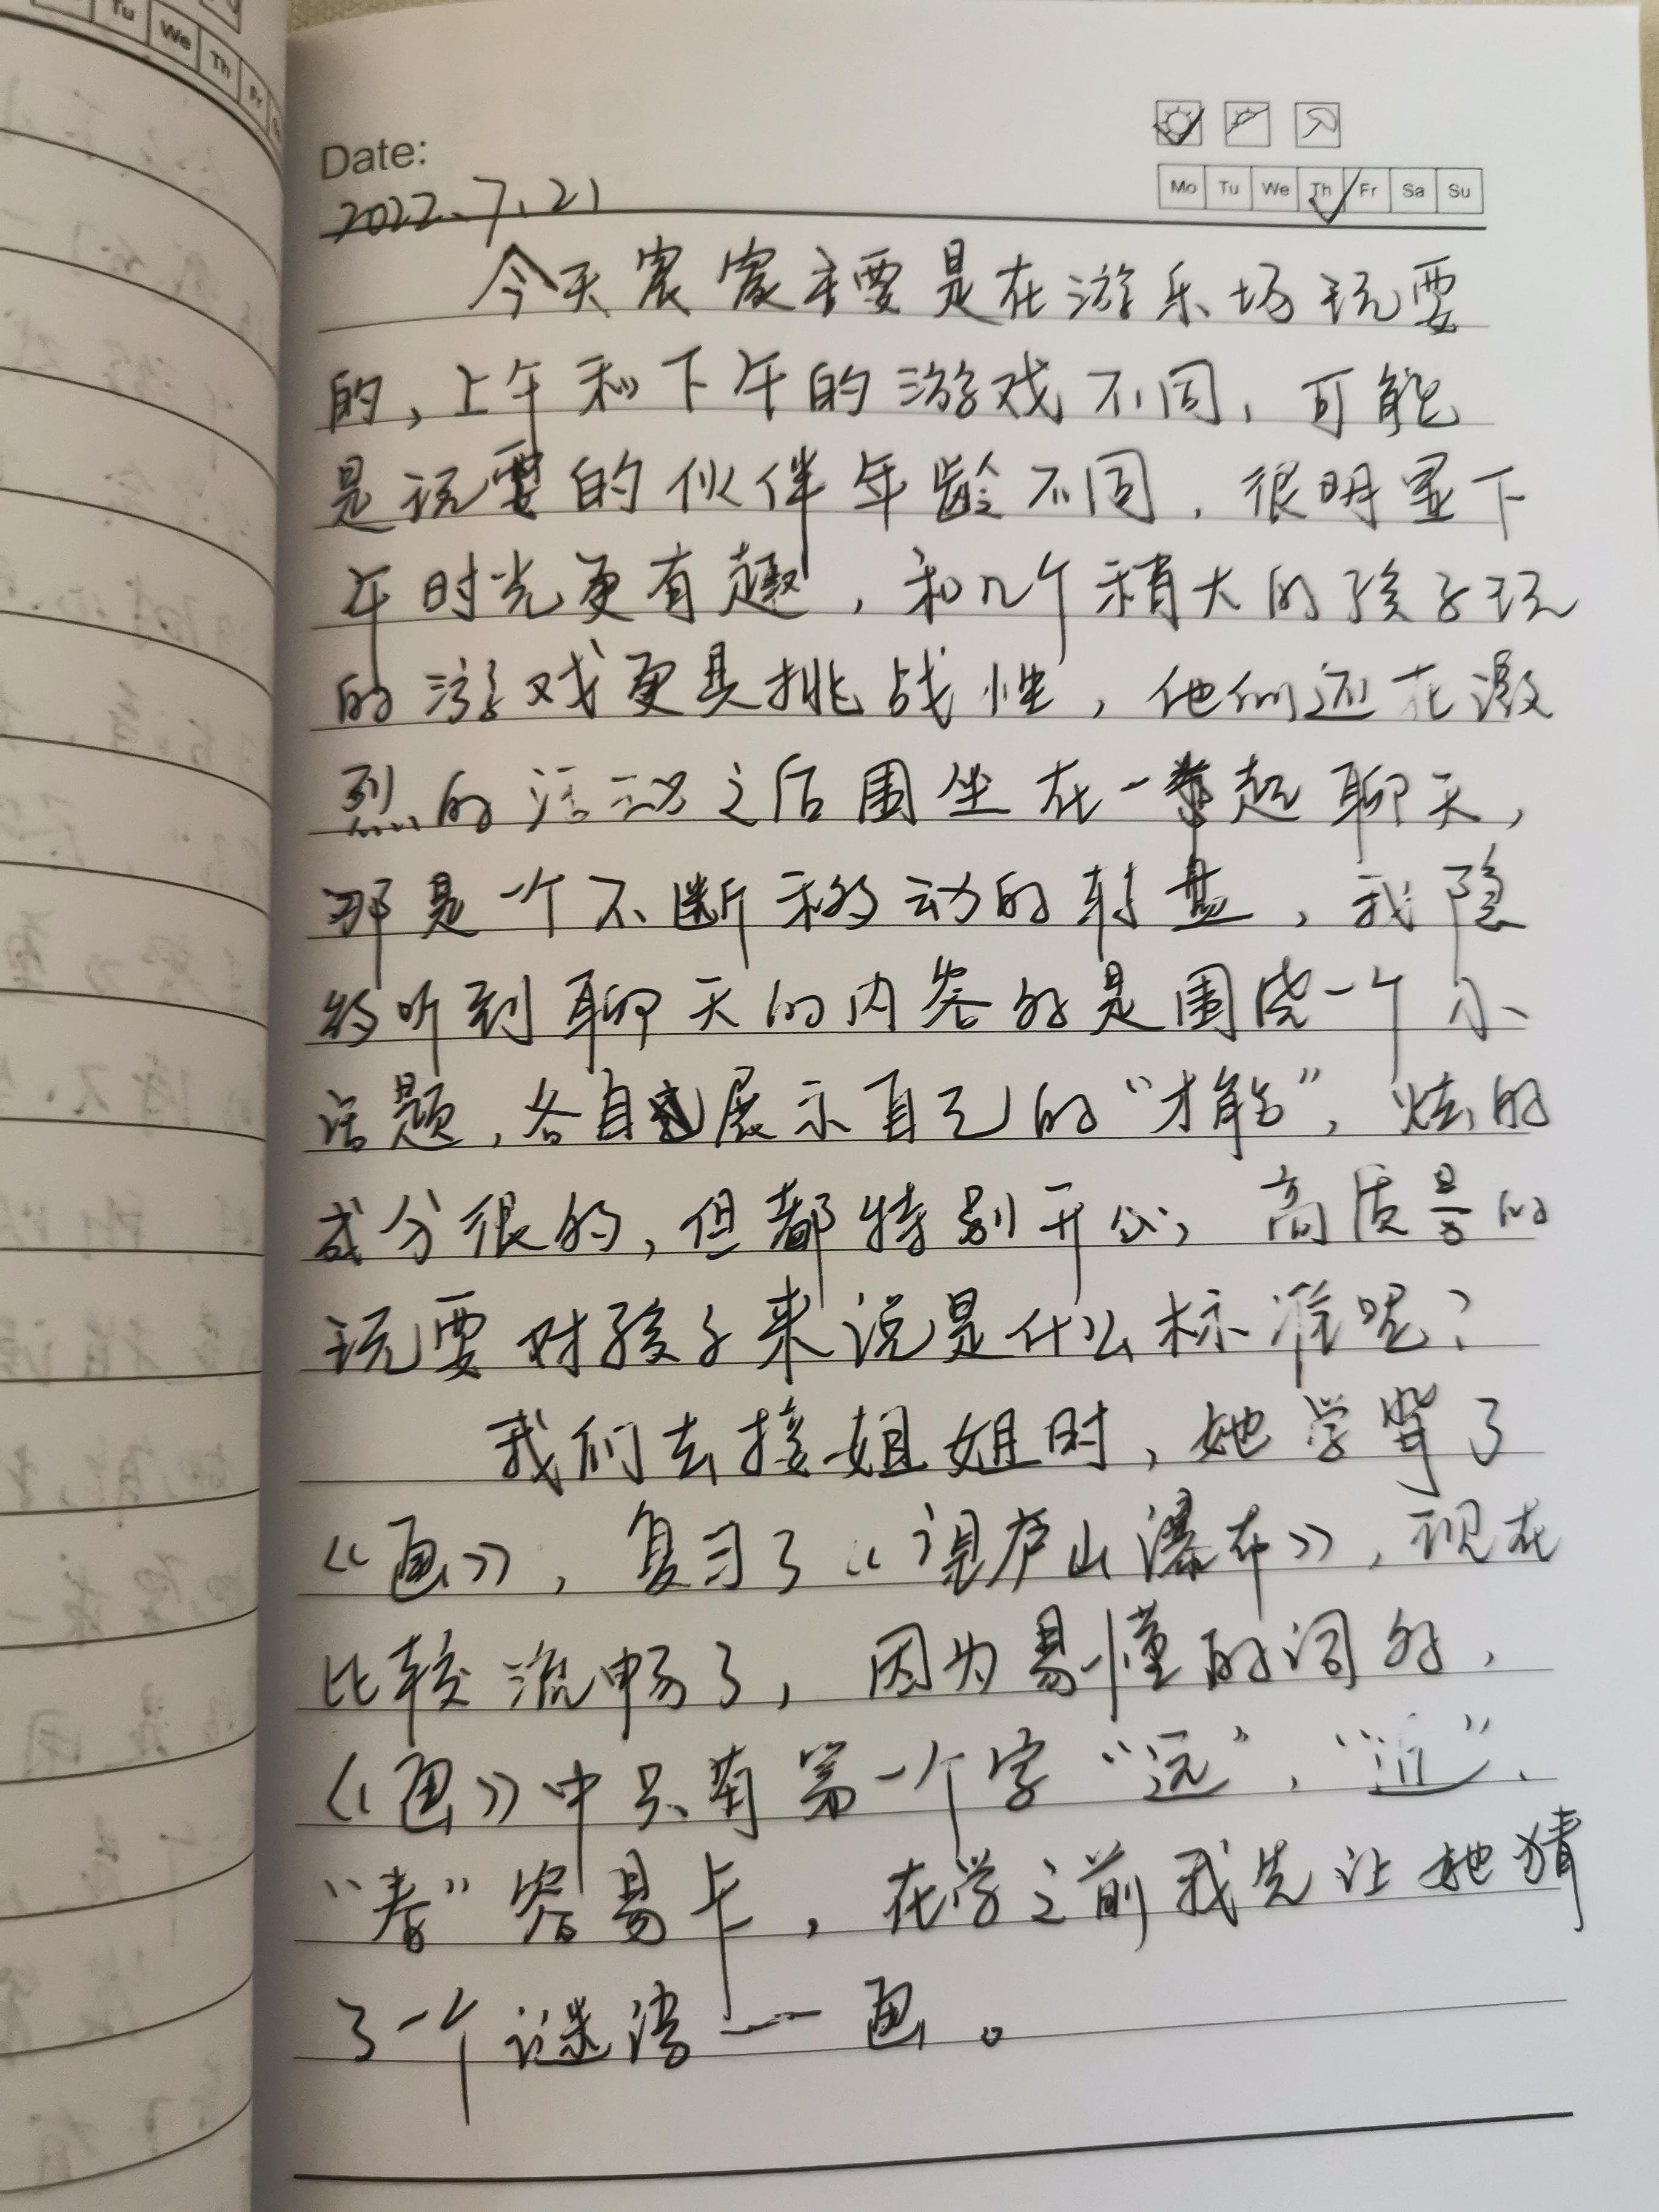 Tu We Th Fr
Date:
2022.7.21
Mo Tu We Th Fr Sa Su
今天宸宸主要是在游乐场玩耍
的，上午和下午的游戏不同，可能
是玩耍的伙伴年龄不同，很明显下
午时光更有趣，和几个稍大的孩子玩
的游戏更具挑战性，他们还在激
烈的活动之后围坐在一起聊天，
那是一个不断移动的转盘，我隐
约听到聊天的内容的是围绕一个小
话题，各自展示自己的“才能”，炫的
成分很的，但都特别开心，高质量的
玩耍对孩子来说是什么标准呢？
我们去接姐姐时，她学背了
《画》，复习了《望庐山瀑布》，现在
比较流畅了，因为易懂的词的，
《画》中只有第一个字“远”，“近”、
“春”容易卡，在学之前我先让她猜
了一个谜语——画。